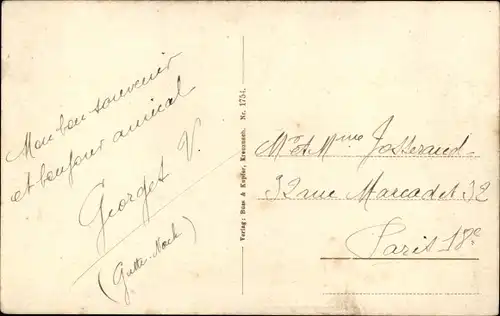 Mon bon souvenir
et bonjour amical
Georget V.
(Gutte-Nock)
Verlag: Buss & Kupfer, Kreuznach. Nr. 1754.
Mr et Mme Josserand
32 rue Marcadet 32
Paris 18e